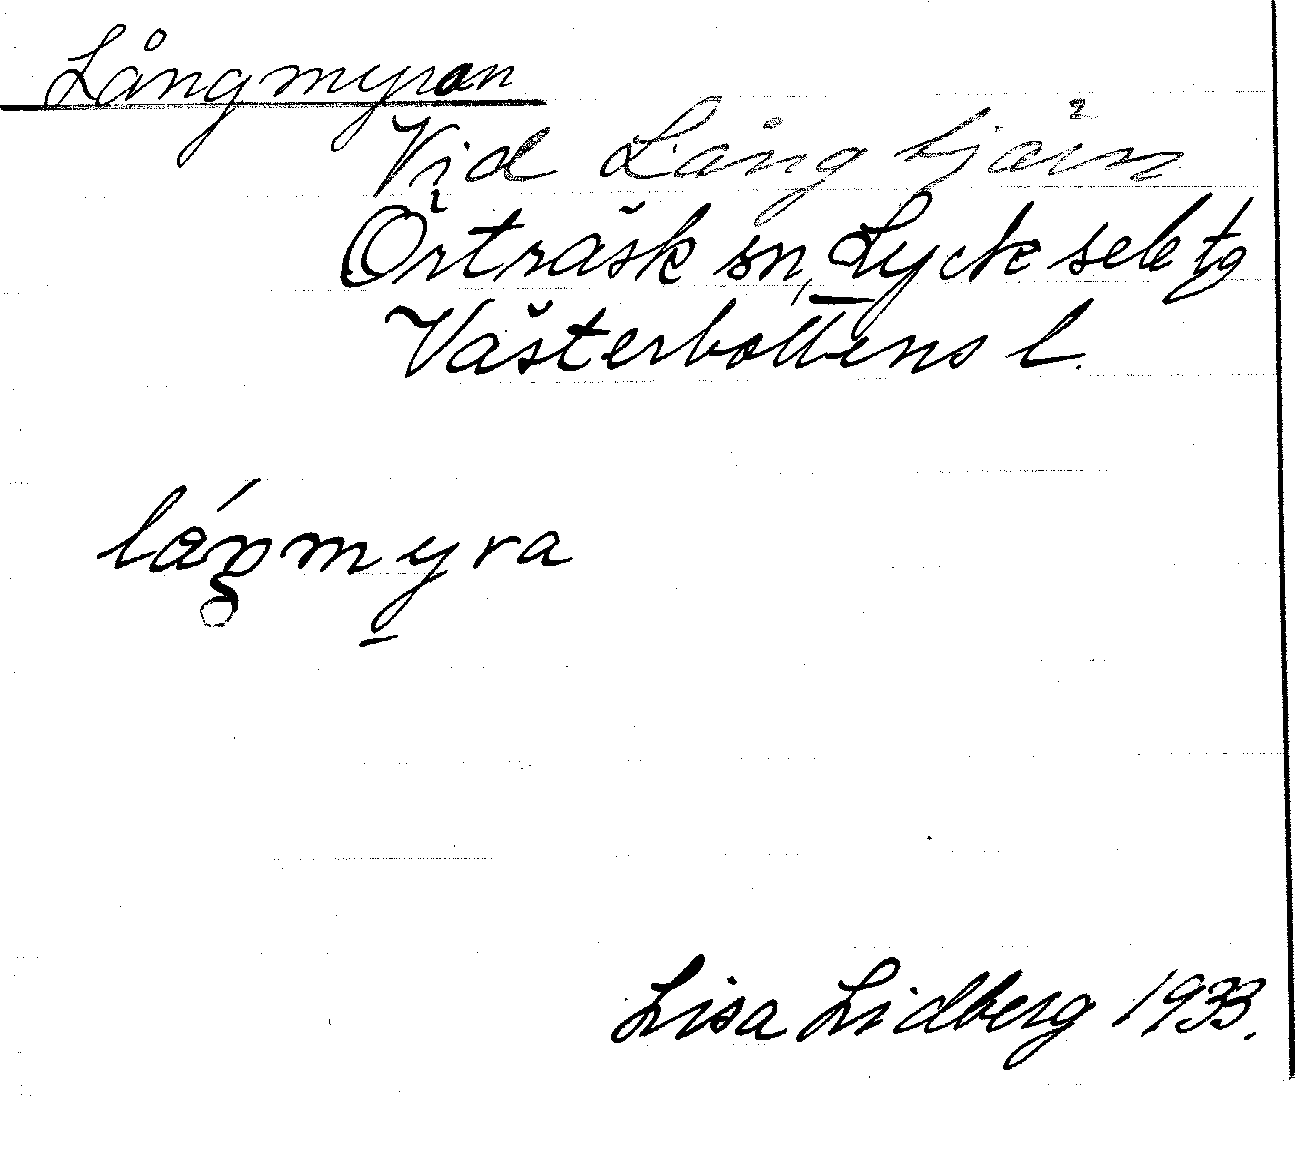 Långmyran
Vid Långtjärn
Örträsk sn, Lycksele tg
Västerbottens l.
låŋmyra
Lisa Lidberg 1933.